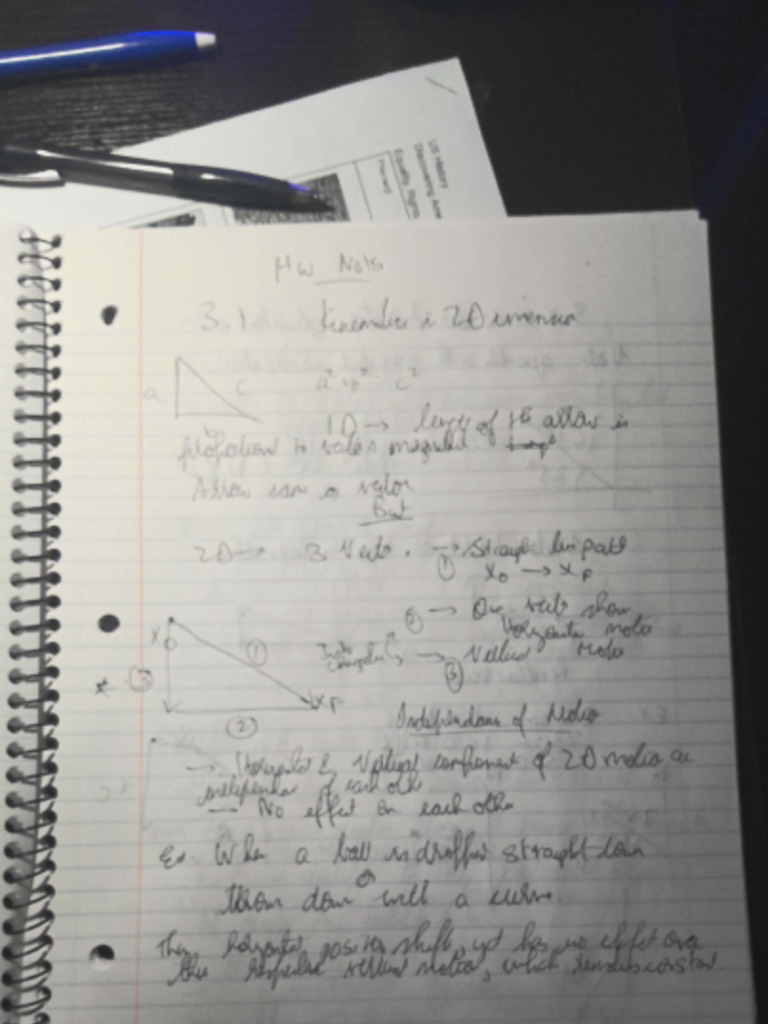 US History
Discovering Ame
Equality, Rights
HW Nots
3.1 Kinematics in 2Dimension
a c a² b² c²
1D → length of the arrow is
proportion to vector's magnitude
Arrow same as vector
But
2D → 3 Vector. → Straight line path
① X₀ → X F
② → One vector show
Horizontal motion
→ Vertical Motion
③
X₀ ①
* ③ X F
②
Independence of Motion
→ Horizontal & Vertical component of 2D motion are
independent of each other
→ No effect on each other
Ex. When a ball is dropped straight down
or
thrown down with a curve.
The horizontal position shift, yet has no effect over
the vertical motion, which remains constant